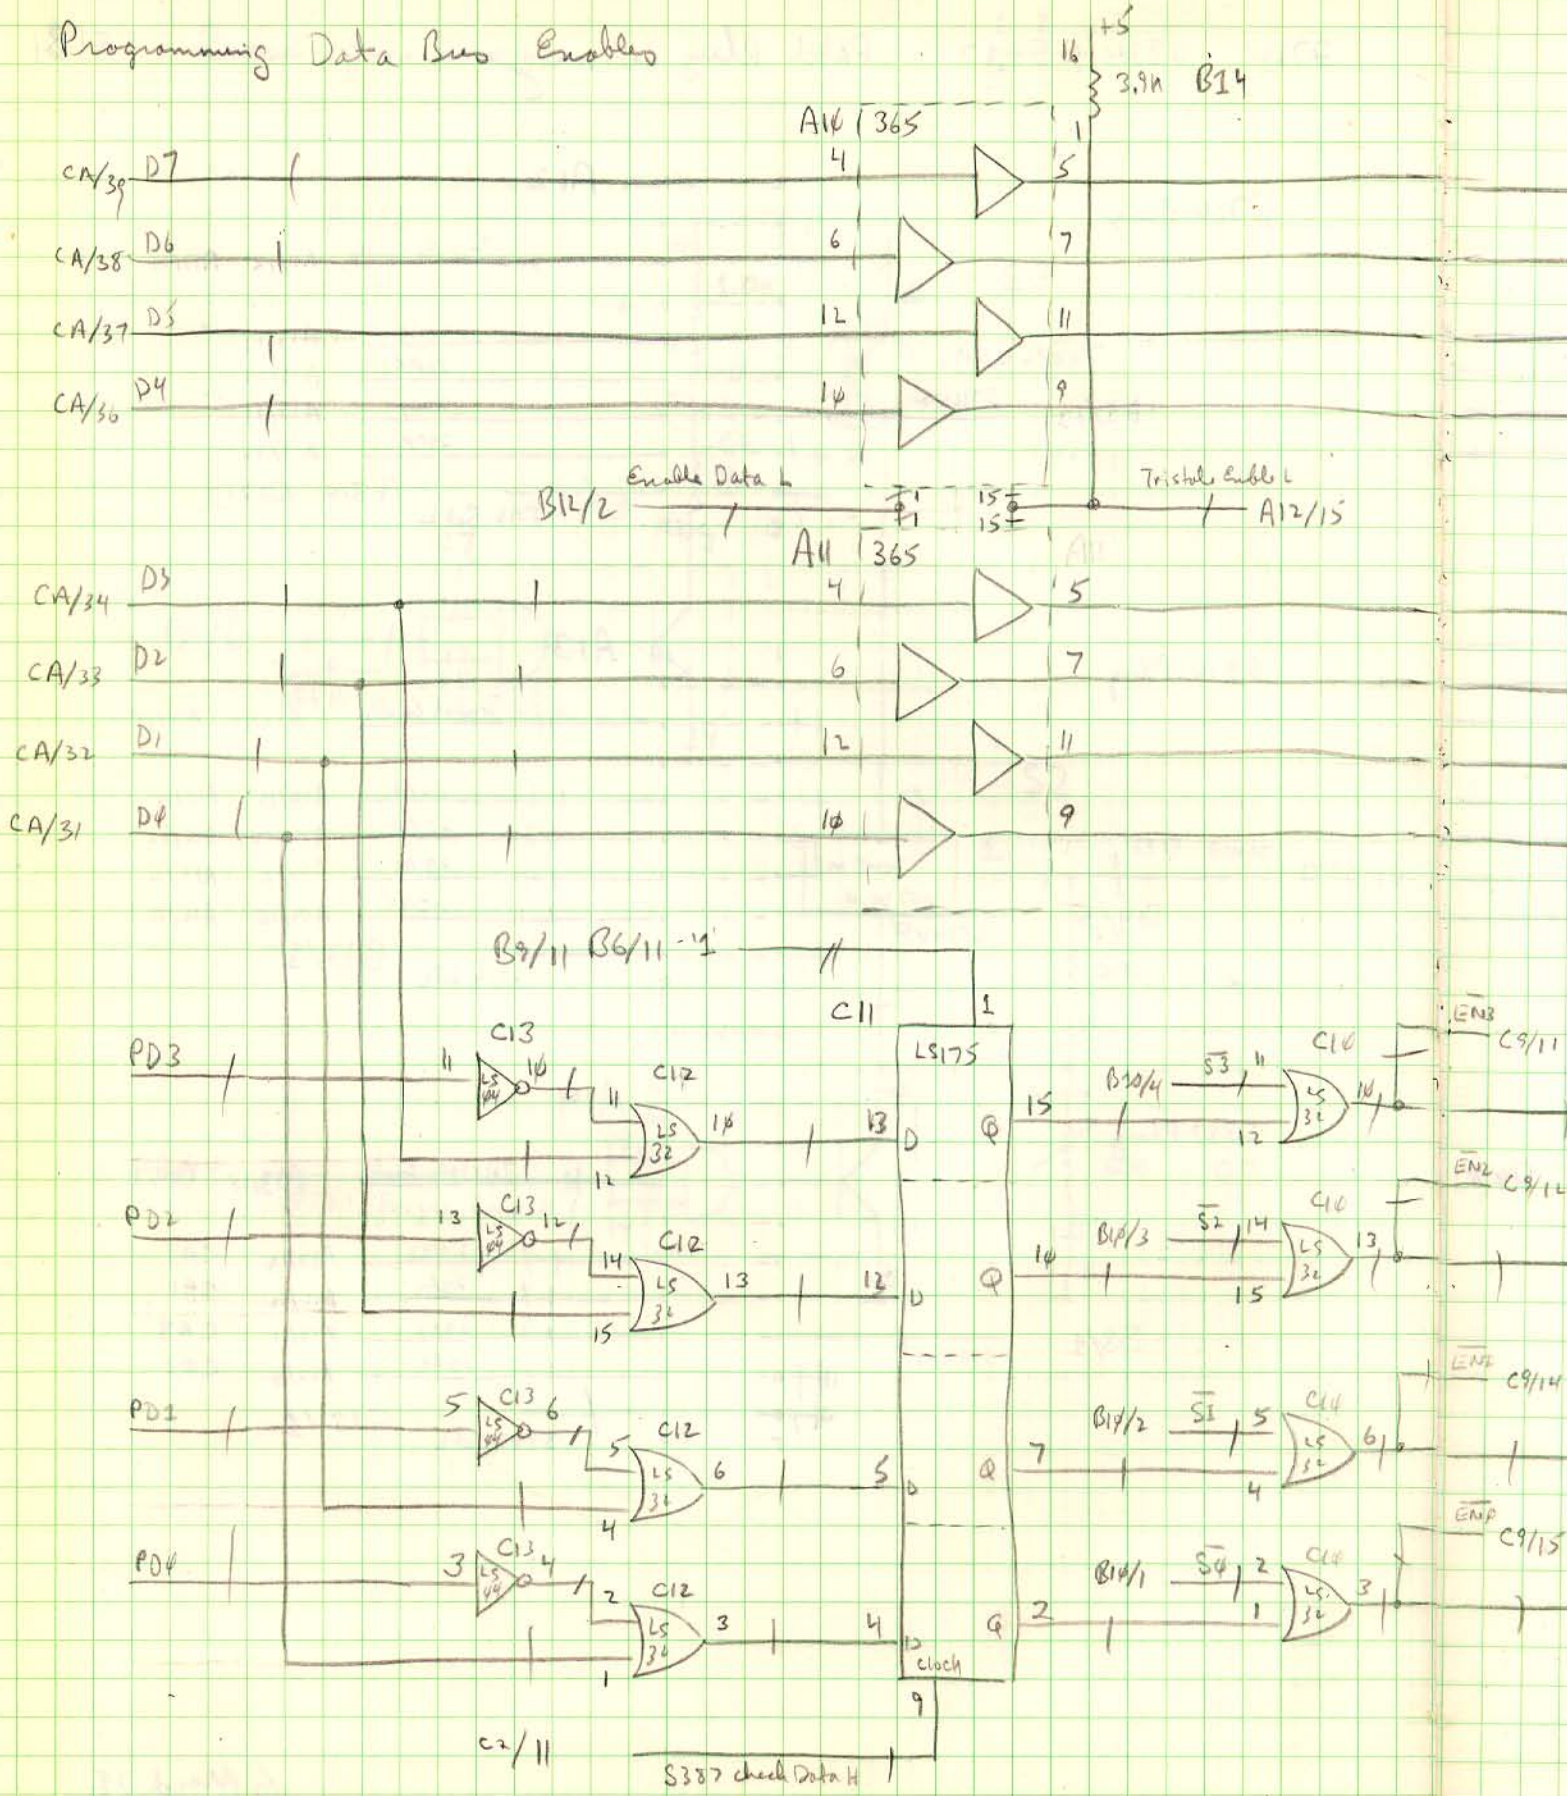 Programming Data Bus Enables
+5
16
3.9K B14
1
A10 365
CA/39 D7 4 5
CA/38 D6 6 7
CA/37 D5 12 11
CA/36 D4 10 9
Enable Data L
Tristate Enable L
B12/2 1 15 A12/15
1 15
A11 365
CA/34 D3 4 5
CA/33 D2 6 7
CA/32 D1 12 11
CA/31 D0 10 9
B9/11 B6/11 -'1'
C11 1
LS175
PD3 11 C13 LS04 10
11 C12 LS32 10
12
13 D Q 15
B10/4 S̅3̅ 11 C10 LS32 10
12
E̅N̅3̅ C9/11
PD2 13 C13 LS04 12
14 C12 LS32 13
15
12 D Q 10
B10/3 S̅2̅ 14 C10 LS32 13
15
E̅N̅2̅ C9/12
PD1 5 C13 LS04 6
5 C12 LS32 6
4
5 D Q 7
B10/2 S̅1̅ 5 C10 LS32 6
4
E̅N̅1̅ C9/14
PD0 3 C13 LS04 4
2 C12 LS32 3
1
4 D Q 2
B10/1 S̅0̅ 2 C10 LS32 3
1
E̅N̅0̅ C9/15
Clock
9
C2/11
S387 check Data H